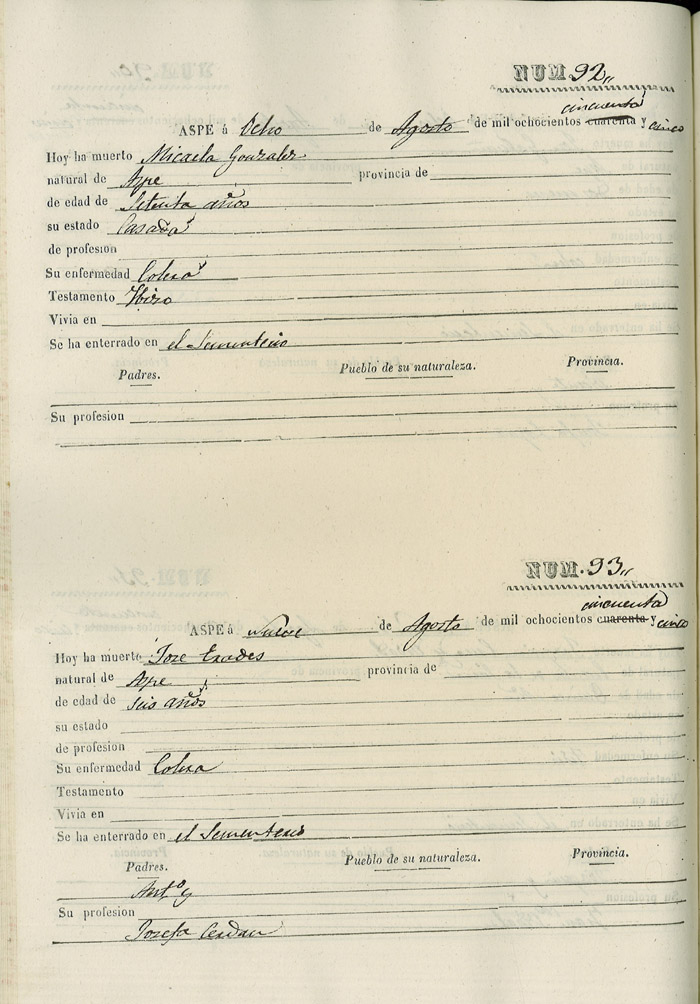 NUM. 92,,
cincuenta
ASPE á Ocho de Agosto de mil ochocientos cuarenta y cinco
Hoy ha muerto Micaela Gonzalez
natural de Aspe provincia de
de edad de Setenta años
su estado Casada
de profesion
Su enfermedad Colera
Testamento Hizo
Vivia en
Se ha enterrado en el Sementerio
Padres. Pueblo de su naturaleza. Provincia.
Su profesion
NUM. 93,,
cincuenta
ASPE á Nueve de Agosto de mil ochocientos cuarenta y cinco
Hoy ha muerto Jose Erades
natural de Aspe provincia de
de edad de seis años
su estado
de profesion
Su enfermedad Colera
Testamento
Vivia en
Se ha enterrado en el Sementerio
Padres. Pueblo de su naturaleza. Provincia.
Antº y
Su profesion
Josefa Cerdan